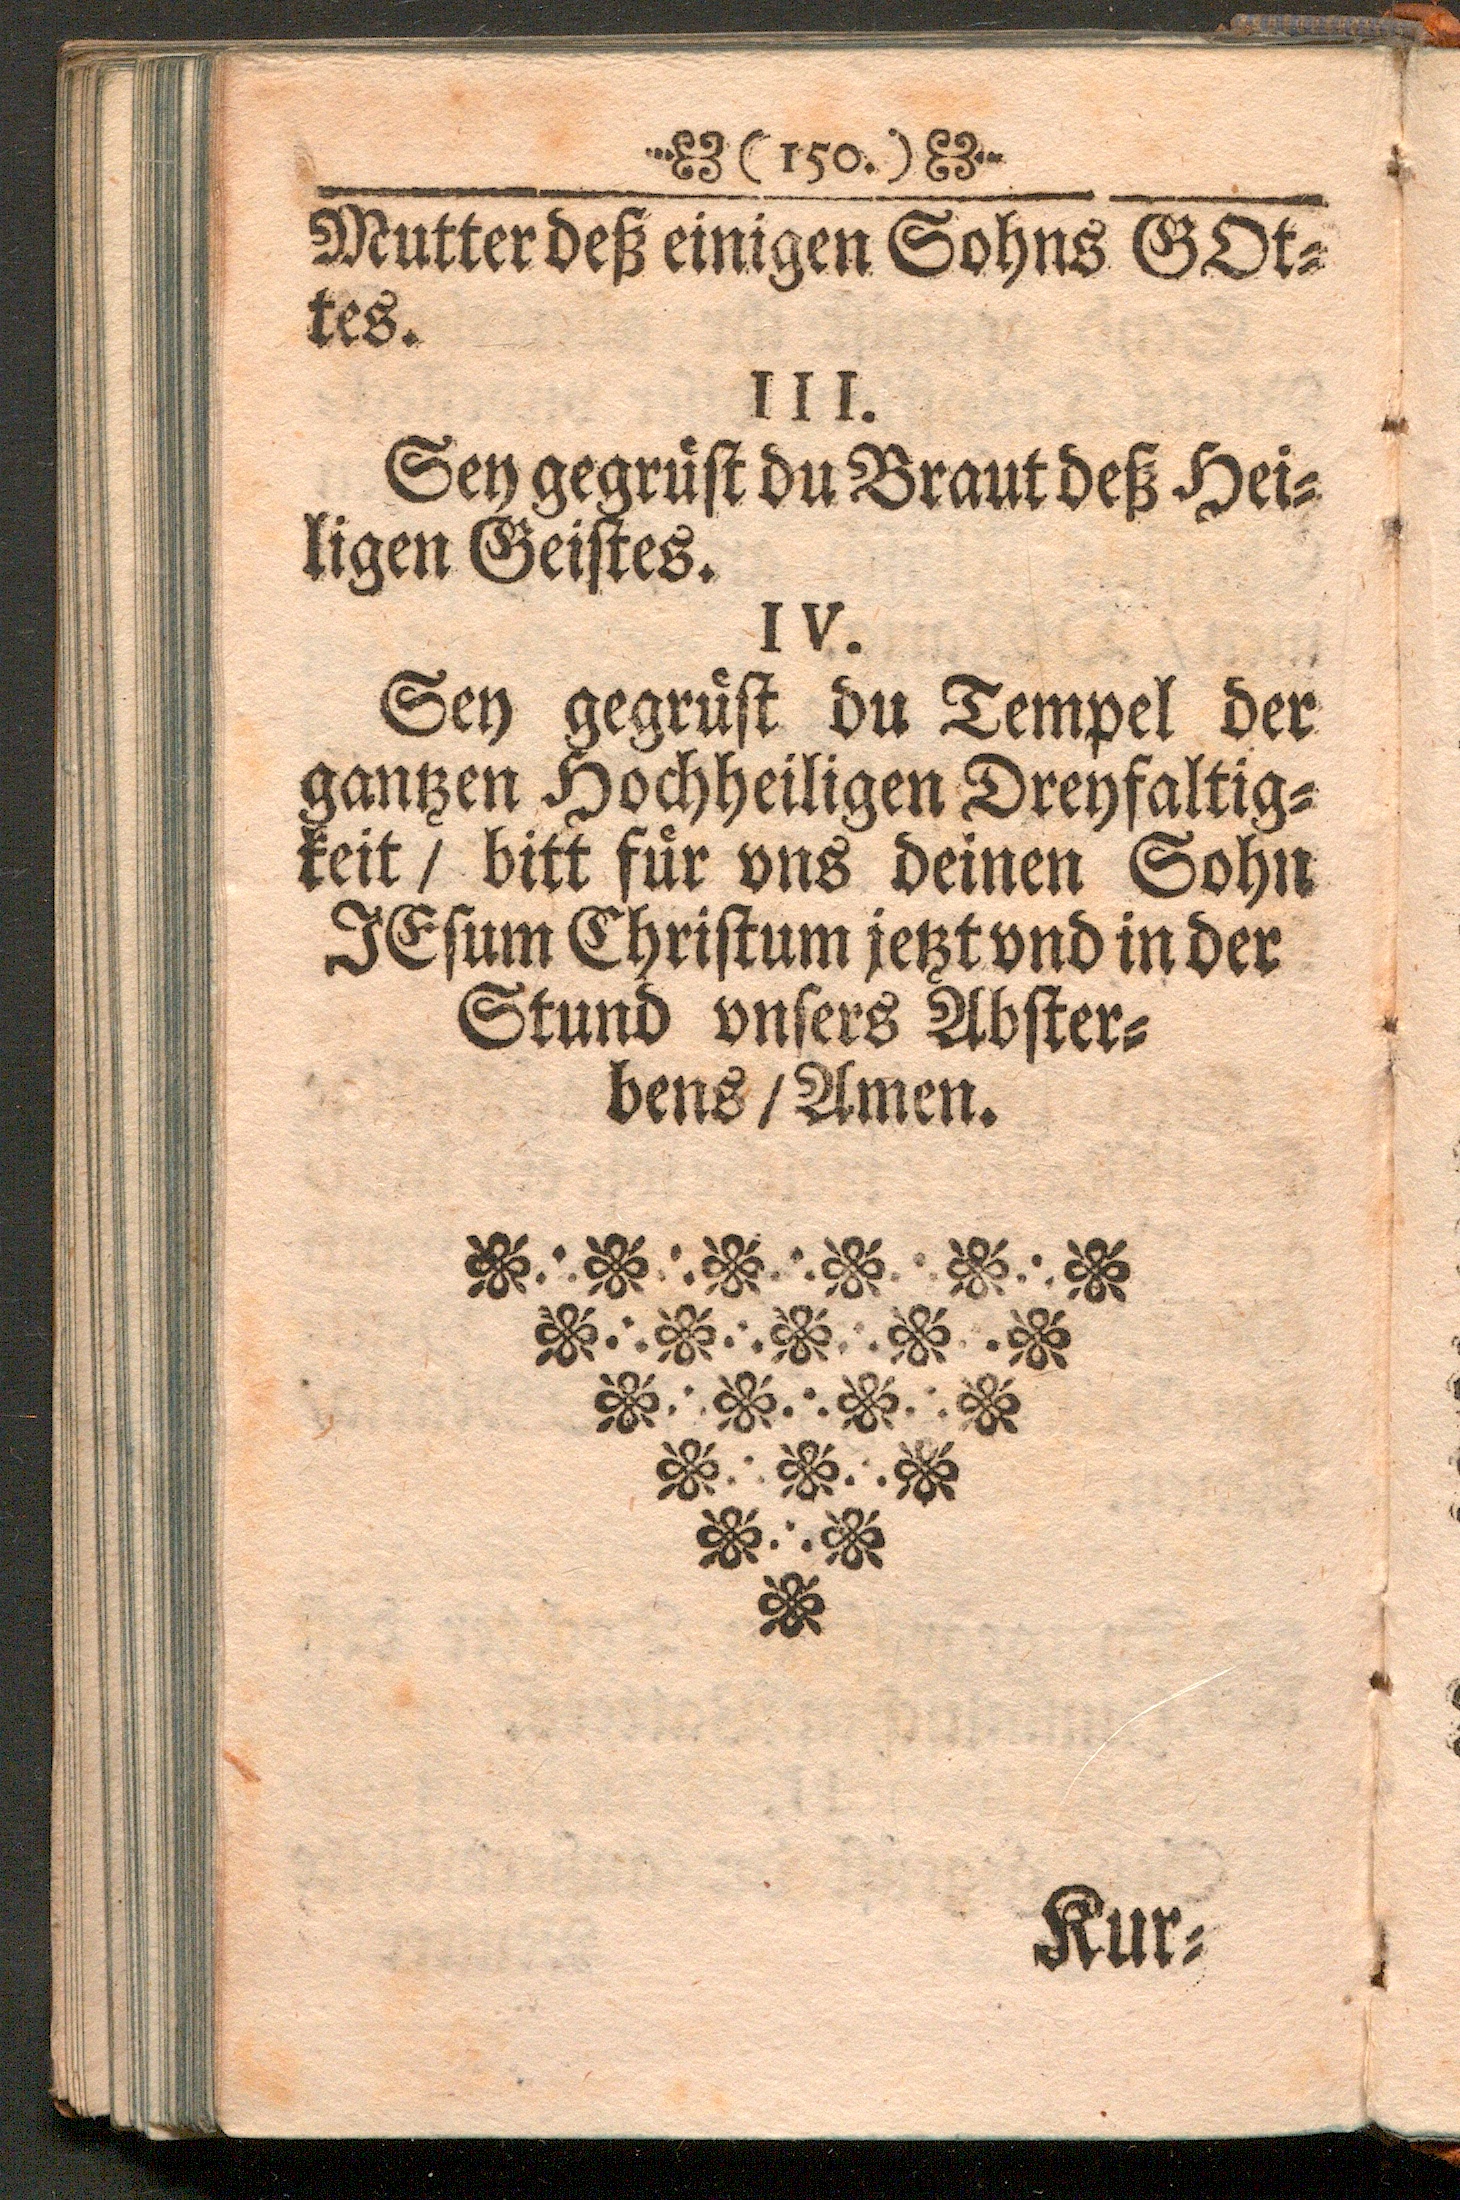 (150.)
Mutter deß einigen Sohns GOt-
tes.
III.
Sey gegrüst du Braut deß Hei-
ligen Geistes.
IV.
Sey gegrüst du Tempel der
gantzen Hochheiligen Dreyfaltig-
keit / bitt für vns deinen Sohn
JEsum Christum jetzt vnd in der
Stund vnsers Abster-
bens / Amen.
Kur-